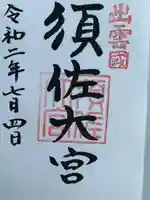 出雲國
須佐大宮
令和二年七月四日